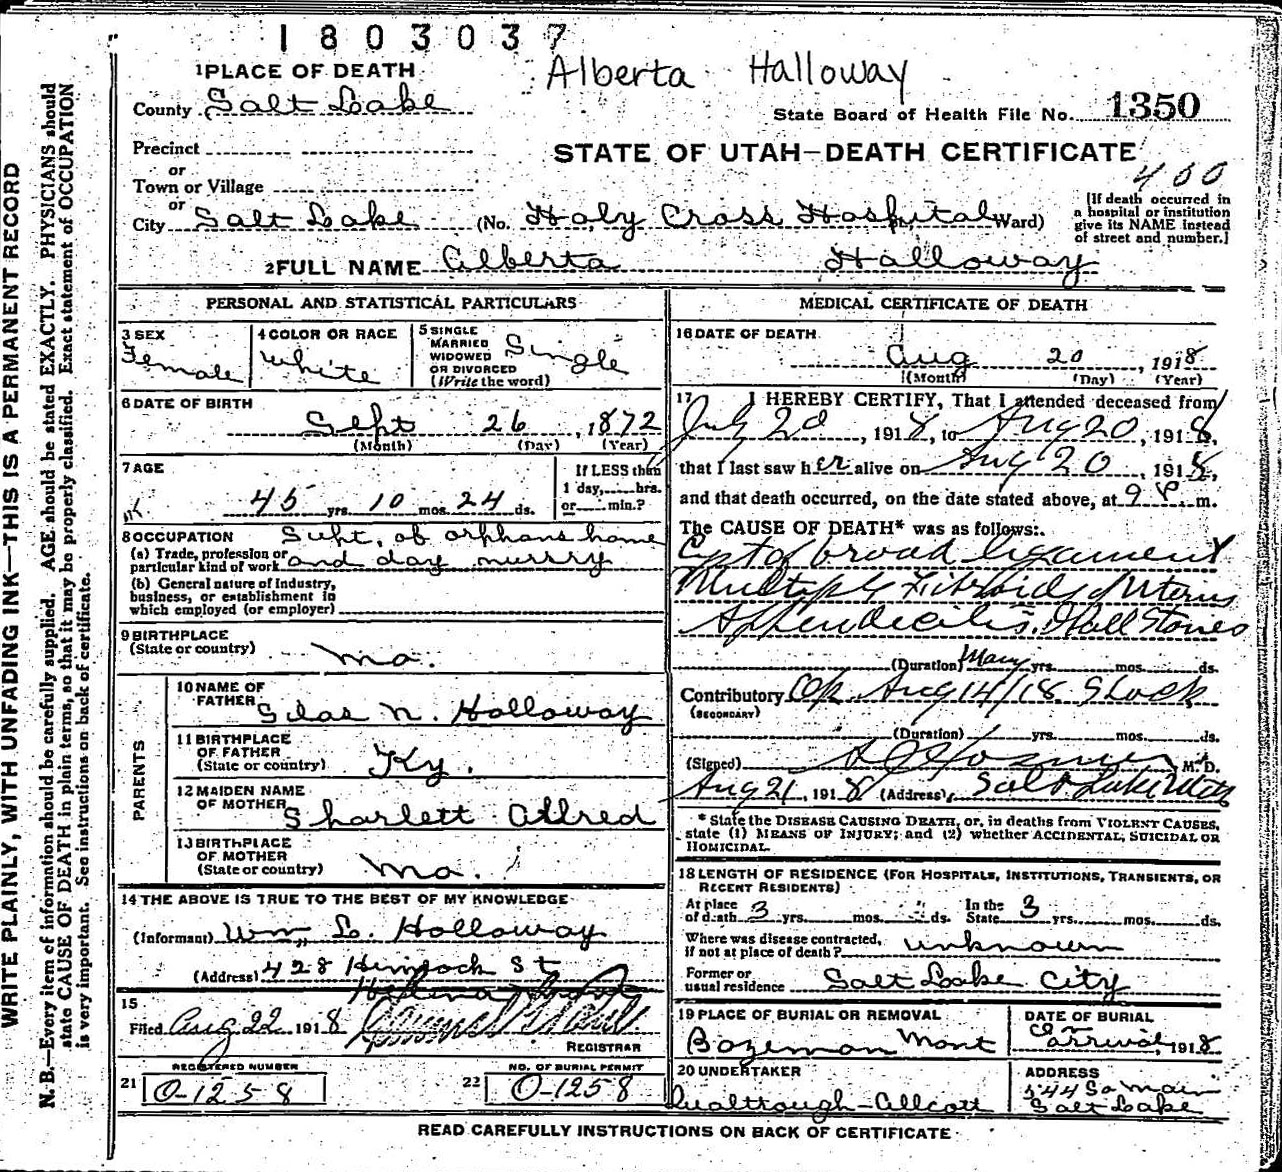 1803037
Alberta Halloway
1 PLACE OF DEATH
County Salt Lake
State Board of Health File No. 1350
Precinct
or
Town or Village
or
STATE OF UTAH—DEATH CERTIFICATE
400
City Salt Lake (No. Holy Cross Hospital Ward)
[If death occurred in
a hospital or institution
give its NAME instead
of street and number.]
2 FULL NAME Alberta Halloway
PERSONAL AND STATISTICAL PARTICULARS
3 SEX
Female
4 COLOR OR RACE
White
5 SINGLE
MARRIED
WIDOWED
OR DIVORCED
(Write the word)
Single
6 DATE OF BIRTH
Sept 26, 1872
(Month) (Day) (Year)
7 AGE
45 yrs. 10 mos. 24 ds.
If LESS than
1 day, hrs.
or min.?
8 OCCUPATION
(a) Trade, profession or
particular kind of work
Supt. of orphans home
and day nursry
(b) General nature of Industry,
business, or establishment in
which employed (or employer)
9 BIRTHPLACE
(State or country)
Mo.
PARENTS
10 NAME OF
FATHER
Silas N. Holloway
11 BIRTHPLACE
OF FATHER
(State or country)
Ky.
12 MAIDEN NAME
OF MOTHER
Sharlett Allred
13 BIRTHPLACE
OF MOTHER
(State or country)
Mo.
14 THE ABOVE IS TRUE TO THE BEST OF MY KNOWLEDGE
(Informant) Wm. L. Holloway
(Address) 428 Hemlock St
Helena
15
Filed Aug 22, 1918
REGISTRAR
21 REGISTERED NUMBER
O-1258
22 NO. OF BURIAL PERMIT
O-1258
MEDICAL CERTIFICATE OF DEATH
16 DATE OF DEATH
Aug 20, 1918
(Month) (Day) (Year)
17 I HEREBY CERTIFY, That I attended deceased from
July 20, 1918, to Aug 20, 1918,
that I last saw her alive on Aug 20, 1918,
and that death occurred, on the date stated above, at 9 P. m.
The CAUSE OF DEATH* was as follows:
Cyst of broad ligament
Multiple Fibroids of Uterus
Appendicitis. Gall Stones
(Duration) Many yrs. mos. ds.
Contributory Op Aug 14/18 Shock
(SECONDARY)
(Duration) yrs. mos. ds.
(Signed) M. D.
Aug 21, 1918 (Address) Salt Lake Utah
* State the DISEASE CAUSING DEATH, or, in deaths from VIOLENT CAUSES,
state (1) MEANS OF INJURY; and (2) whether ACCIDENTAL, SUICIDAL OR
HOMICIDAL.
18 LENGTH OF RESIDENCE (FOR HOSPITALS, INSTITUTIONS, TRANSIENTS, OR
RECENT RESIDENTS)
At place
of death 3 yrs. mos. ds.
In the
State 3 yrs. mos. ds.
Where was disease contracted,
if not at place of death? unknown
Former or
usual residence Salt Lake City
19 PLACE OF BURIAL OR REMOVAL
Bozeman Mont
DATE OF BURIAL
On
arrival, 1918
20 UNDERTAKER
Qualtrough-Allcott
ADDRESS
544 So Main
Salt Lake
READ CAREFULLY INSTRUCTIONS ON BACK OF CERTIFICATE
WRITE PLAINLY, WITH UNFADING INK—THIS IS A PERMANENT RECORD
N. B.—Every item of information should be carefully supplied. AGE should be stated EXACTLY. PHYSICIANS should
state CAUSE OF DEATH in plain terms, so that it may be properly classified. Exact statement of OCCUPATION
is very important. See instructions on back of certificate.